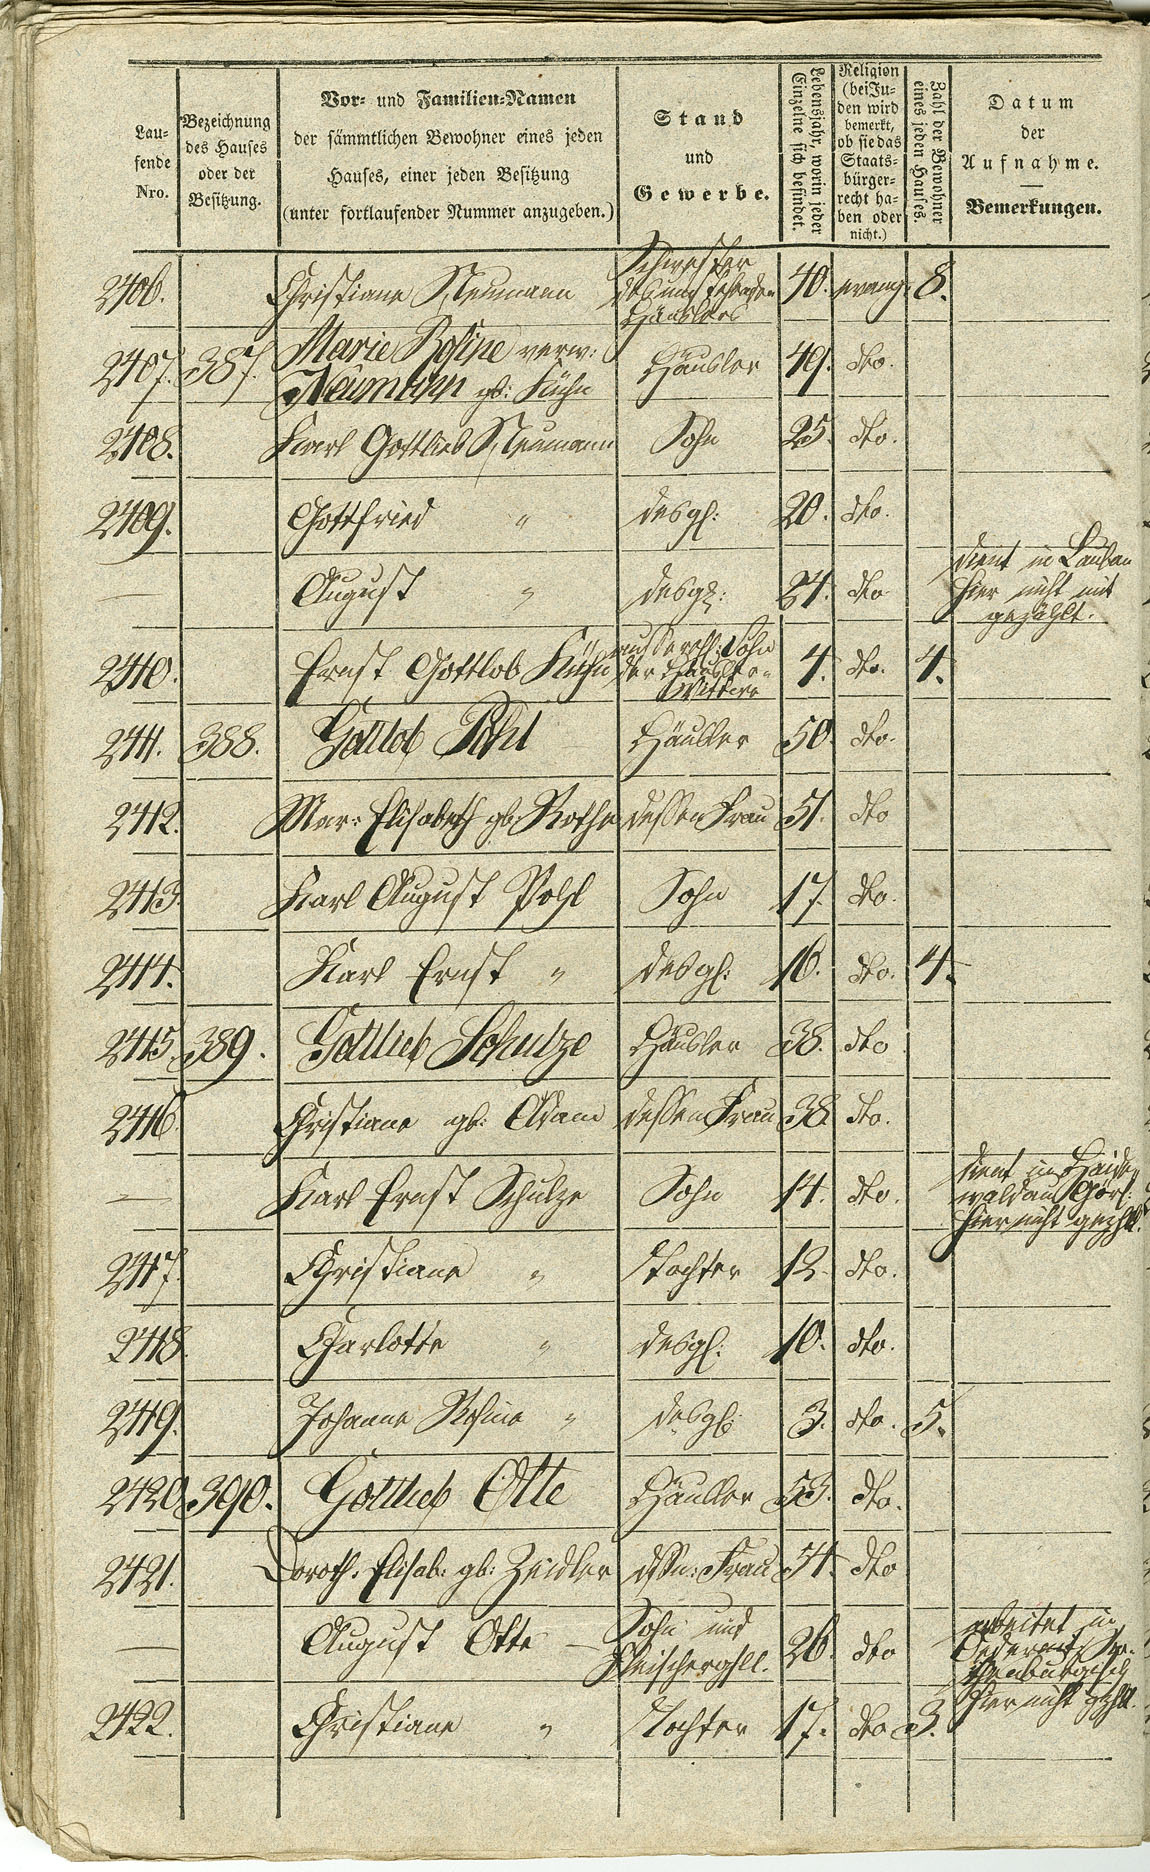 Lau-
fende
Nro.
Bezeichnung
des Hauses
oder der
Besitzung.
Vor- und Familien-Namen
der sämmtlichen Bewohner eines jeden
Hauses, einer jeden Besitzung
(unter fortlaufender Nummer anzugeben.)
Stand
und
Gewerbe.
Lebensjahr, worin jeder
Einzelne sich befindet.
Religion
(bei Ju-
den wird
bemerkt,
ob sie das
Staats-
bürger-
recht ha-
ben oder
nicht.)
Zahl der Bewohner
eines jeden Hauses.
Datum
der
Aufnahme.
Bemerkungen.
2406. Christiane Neumann Schwester des Häuslers 40. evang. 8.
2407. 387. Marie Rosine verw: Häusler 49. dto.
Neumann gb: Kühn
2408. Karl Gottlieb Neumann Sohn 25. dto.
2409. Gottfried " desgl: 20. dto.
— August " desgl: 24. dto dient in Lauban
hier nicht mit
gezählt.
2410. Ernst Gottlob Kühn Sohn 4. dto. 4.
der Häusler
Wittwe
2411. 388. Gottlob Pohl Häusler 50. dto.
2412. Mar: Elisabeth gb: Rothe dessen Frau 51. dto
2413. Karl August Pohl Sohn 17. dto.
2414. Karl Ernst " desgl: 16. dto. 4.
2415. 389. Gottlieb Schulze Häusler 38. dto
2416. Christiane gb: Adam dessen Frau 38. dto.
— Karl Ernst Schulze Sohn 14. dto. dient in Haide-
waldau Görl:
hier nicht gezählt.
2417. Christiane " Tochter 12. dto.
2418. Charlotte " desgl: 10. dto.
2419. Johanne Rosine " desgl: 3. dto. 5.
2420. 390. Gottlieb Otte Häusler 53. dto.
2421. Doroth. Elisab: gb: Zeidler dssn: Frau 54. dto
— August Otte — Sohn und 26. dto arbeitet in
Fleischergsell.
hier nicht gzhlt.
2422. Christiane " Tochter 17. dto 3.